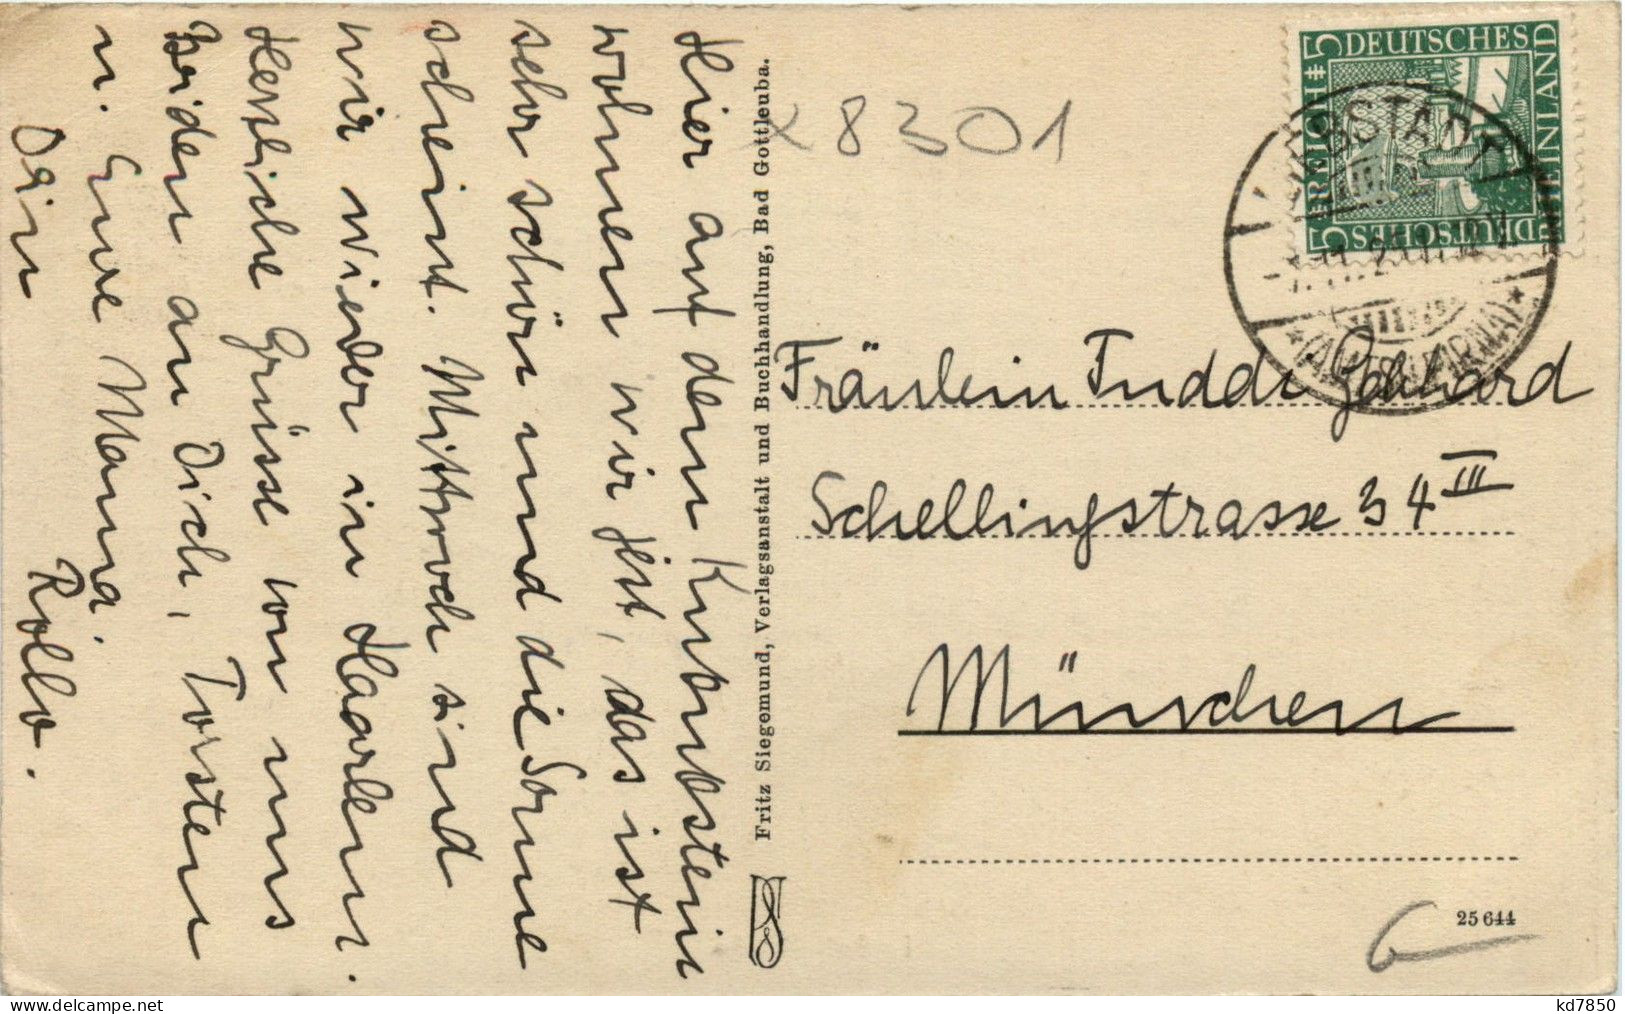 Hier auf dem Kuckuckstein
wohnen wir jetzt, das ist
sehr schön und die Sonne
scheint. Mittwoch sind
wir wieder in Haarlem.
Herzliche Grüsse von uns
beiden an Dich, Torsten
u. Eure Mama.
Dein
Rollo.
Fritz Siegemund, Verlagsanstalt und Buchhandlung, Bad Gottleuba.
x 8301
DEUTSCHES REICH 5
5 DEUTSCHES RHEINLAND
LIEBSTADT
(AMTSH. PIRNA)
Fräulein Fuddi Gebhard
Schellingstrasse 34 III
München
25 644
www.delcampe.net
kd7850